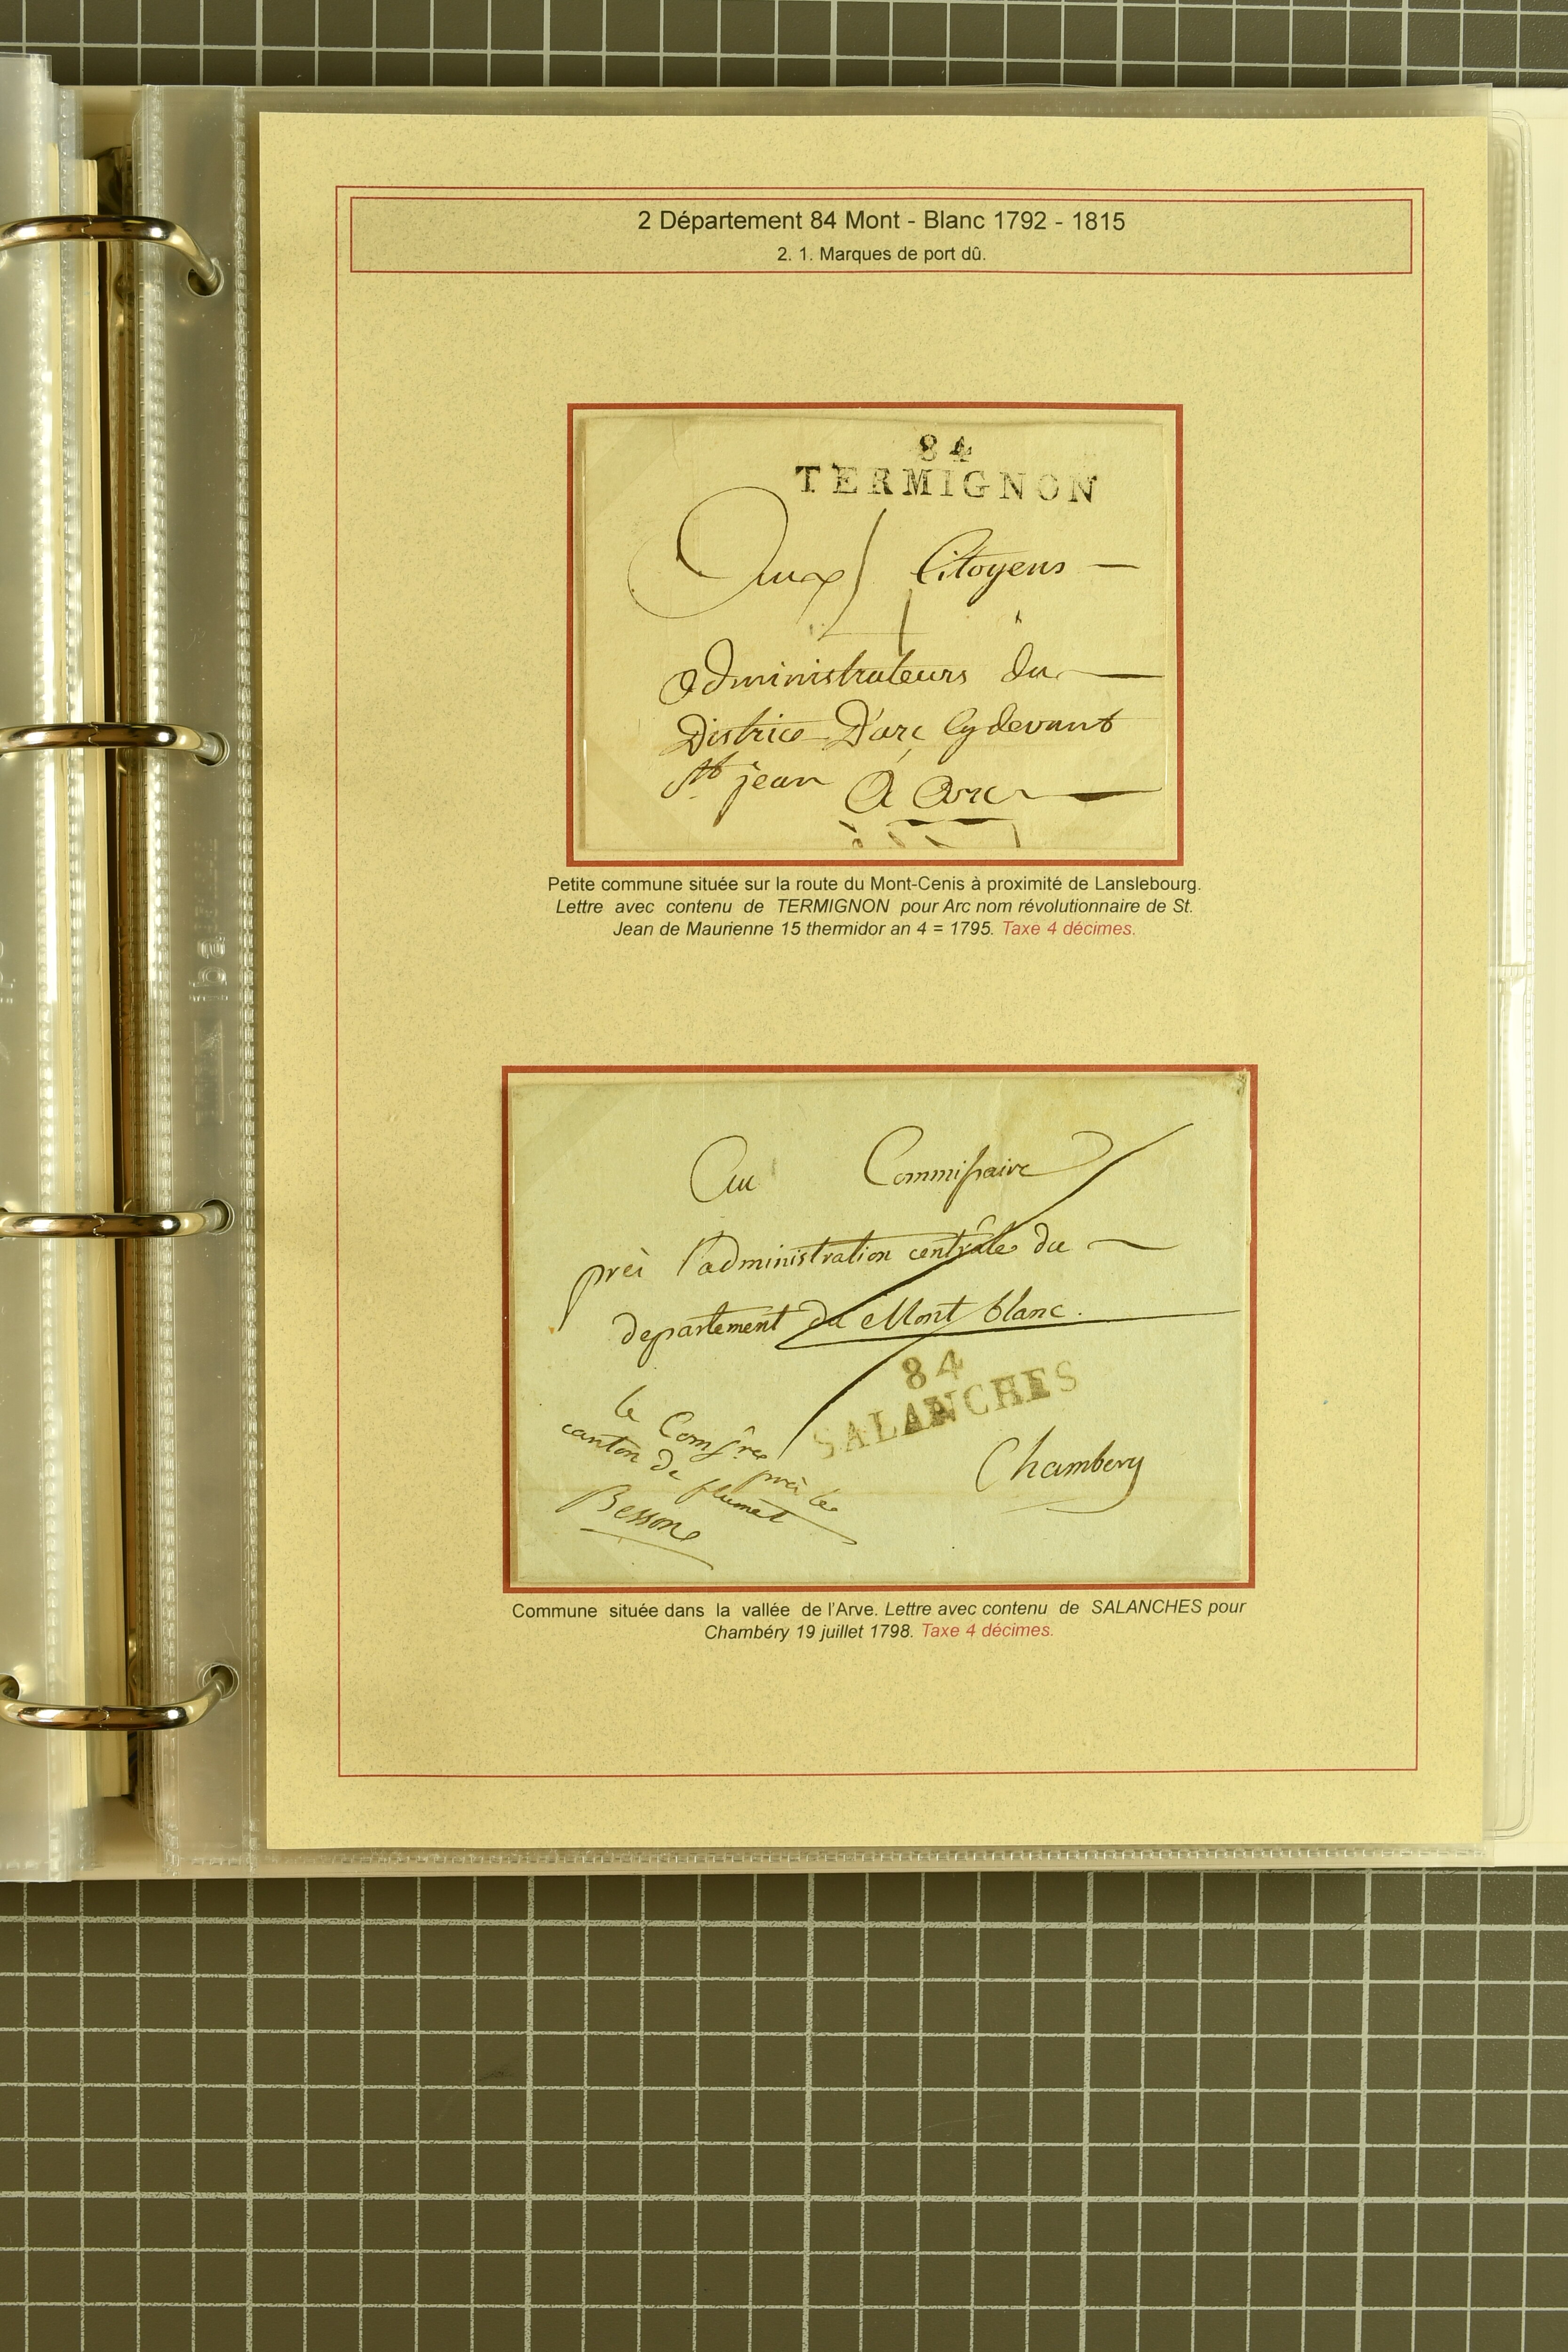 2 Département 84 Mont - Blanc 1792 - 1815
2. 1. Marques de port dû.
84
TERMIGNON
Aux Citoyens
4
administrateurs du
District D'arc Cydevant
St jean à Arc
Petite commune située sur la route du Mont-Cenis à proximité de Lanslebourg.
Lettre avec contenu de TERMIGNON pour Arc nom révolutionnaire de St.
Jean de Maurienne 15 thermidor an 4 = 1795. Taxe 4 décimes.
Au Commissaire
près l'administration centrale du
departement du Mont blanc.
84
SALANCHES
le Comsre près le
canton de flumet
Besson
Chambery
Commune située dans la vallée de l'Arve. Lettre avec contenu de SALANCHES pour
Chambéry 19 juillet 1798. Taxe 4 décimes.